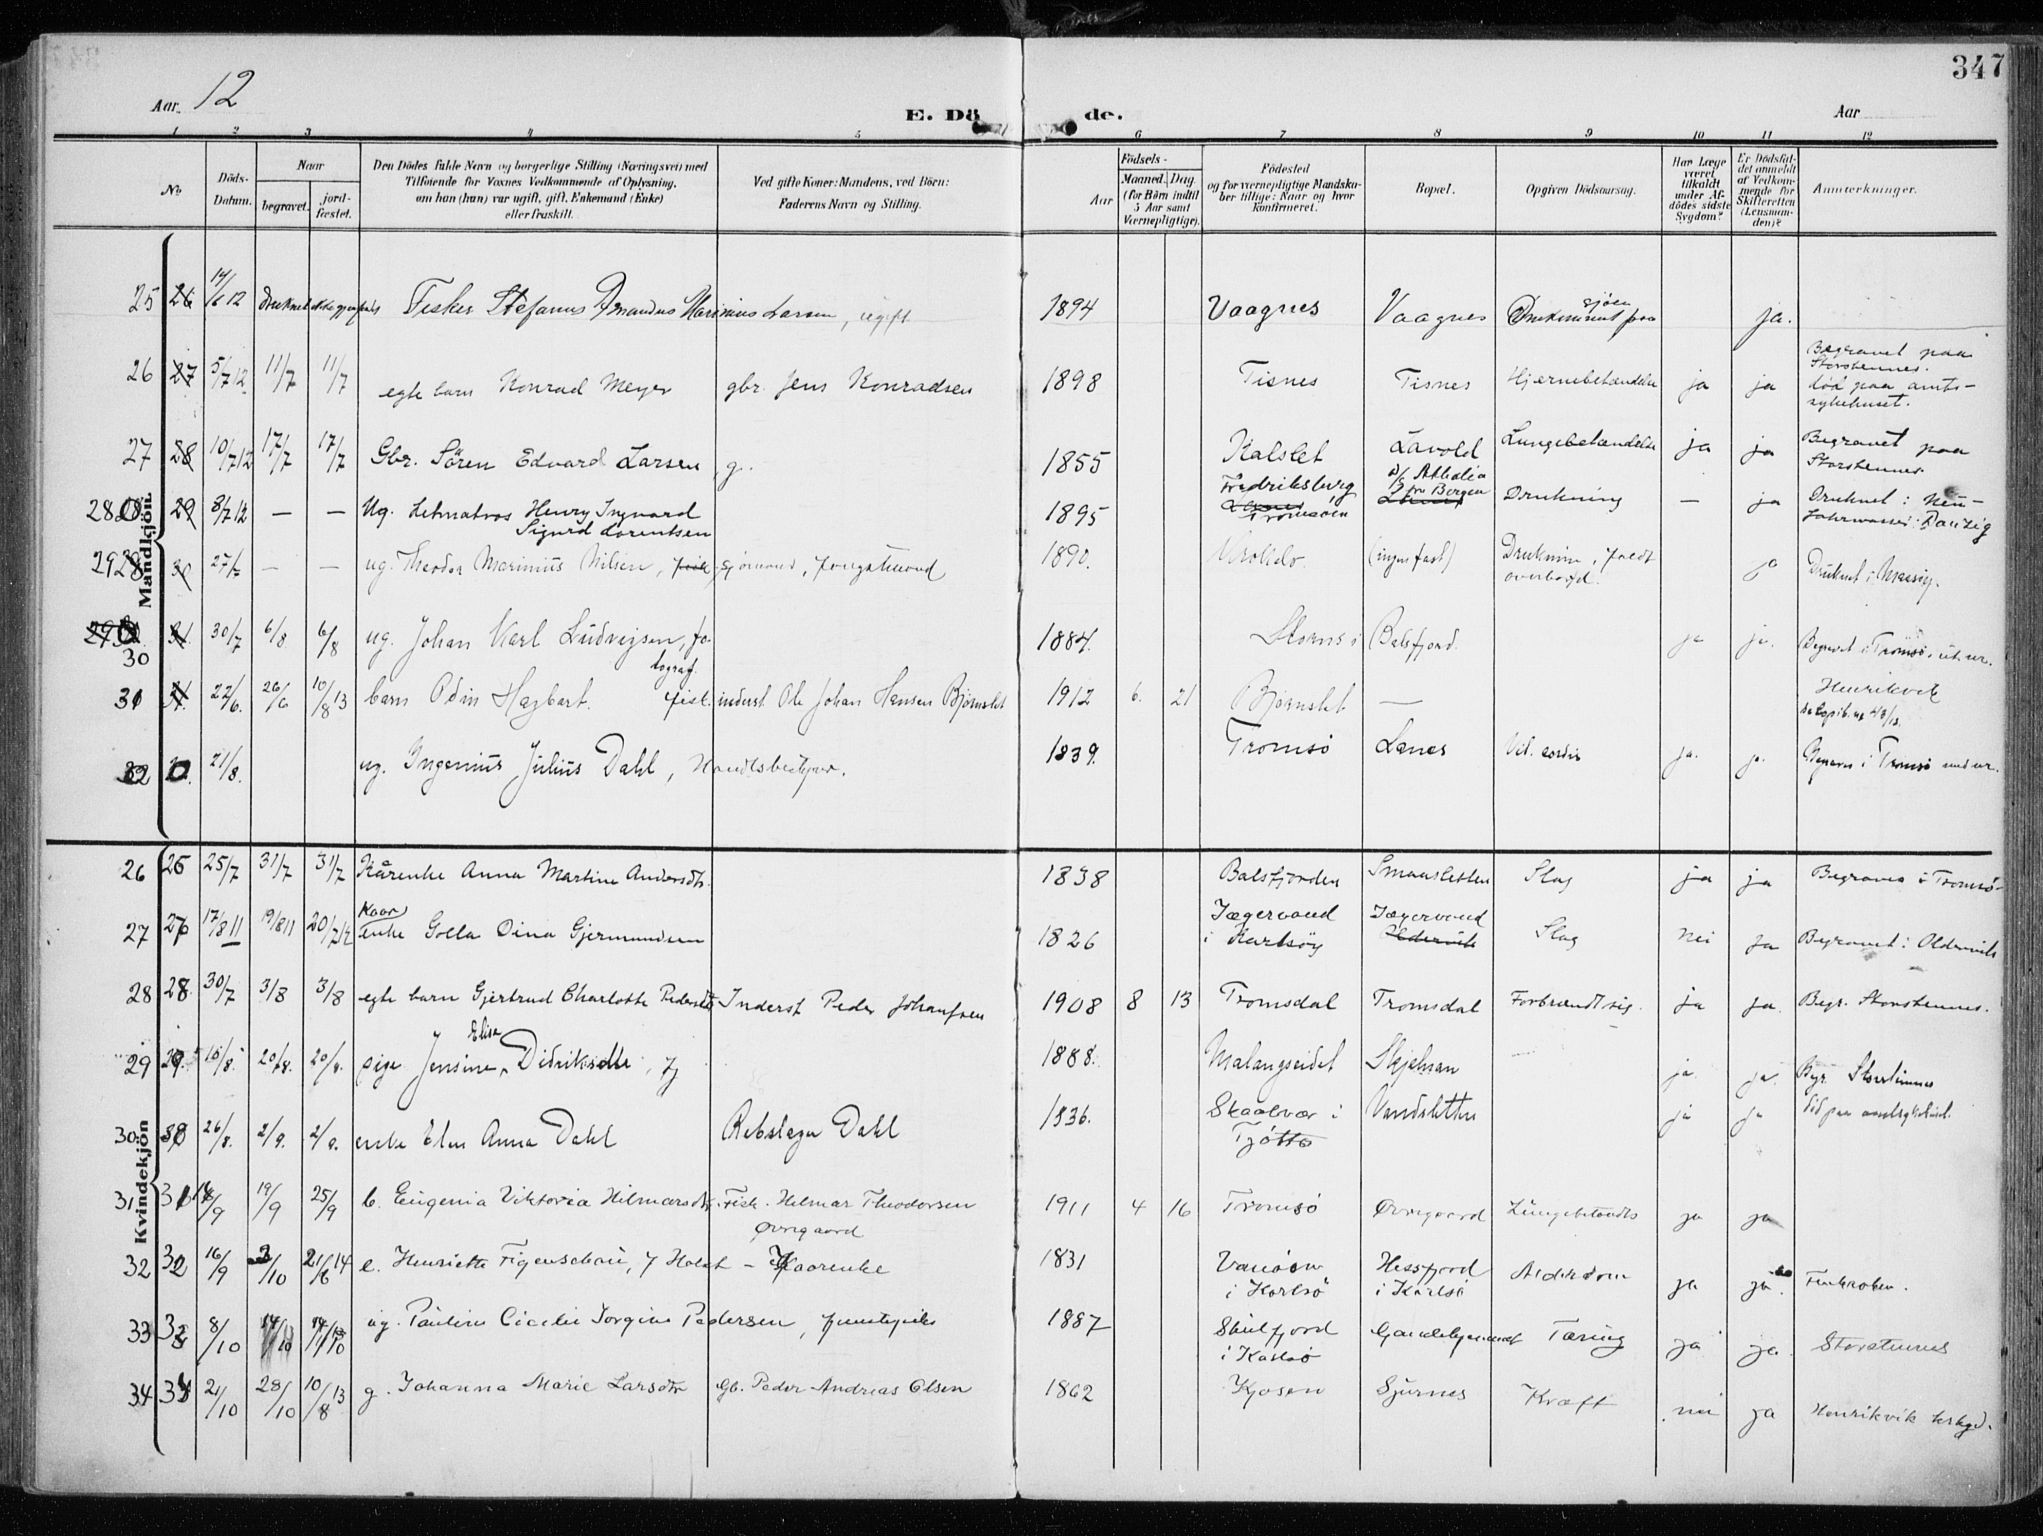 347
Aar 12
E. Dö de.
Aar
1 2 3 4 5 6 7 8 9 10 11 12
No
Döds-Datum.
Naar
begravet.
jord-fæstet.
Den Dödes fulde Navn og borgerlige Stilling (Næringsvei) med
Tilföiende for Voxnes Vedkommende af Oplysning,
om han (hun) var ugift, gift, Enkemand (Enke)
eller fraskilt.
Ved gifte Koner: Mandens, ved Börn:
Faderens Navn og Stilling.
Födsels-
Aar
Maaned. Dag.
(for Börn indtil
5 Aar samt
Værnepligtige).
Födested
og for værnepligtige Mandska-
ber tillige: Naar og hvor
konfirmeret.
Bopæl.
Opgiven Dödsaarsag.
Har Læge
været
tilkaldt
under Af-
dödes sidste
Sygdom?
Er Dödsfal-
det anmeldt
af Vedkom-
mende for
Skifteretten
(Lensman-
den)?
Anmærkninger.
Mandkjön.
25 26 14/6 12 Druknet Fisker Stefanus Amandus Marinius Larsen, ugift 1894 Vaagnes Vaagnes paa sjöen ja.
26 27 5/7 12 11/7 11/7 egte barn Konrad Meyer gbr. Jens Konradsen 1898 Tisnes Tisnes Hjernebetændelse ja ja Begravet paa Storstennes. död paa amts-sykehuset.
27 28 10/7 12 17/7 17/7 Gbr. Sören Edvard Larsen, g. 1855 Kalslet Lavold Lungebetændelse ja ja Begravet paa Storstennes
28 29 8/7 12 — — Ug. Letmatros Henry Ingvard Sigurd Lorentsen 1895 Fredriksberg Tromsöen D/S Athalia fra Bergen Drukning — ja Druknet i Neu-Fahrwasser i Danzig
29 30 27/7 — — ug. Theodor Marinius Nilsen, sjömand, fangstmand 1890. Krokelv (ingen fast) Drukning, faldt overbord. ja Druknet i
30 31 30/7 6/8 6/8 ug. Johan Karl Ludvigsen, fotograf. 1884. i Balsfjord. ja ja. Begravet i Tromsö
31 22/6. 26/6 10/8 13 barn Odin Hagbart. fisk. inderst Ole Johan Hansen Bjørnslet 1912 6. 21 Bjørnslet — Henrikvik
32 21/8. ug. Ingenius Julius Dahl, Handelsbestyrer. 1839. Tromsö Lanes Vit. cordis ja. ja. i Tromsö
Kvindekjön
26 25 25/7 31/7 31/7 Kårenke Anna Martine Andersdtr. 1838 Balsfjorden Smaasletten Slag ja ja Begraves i Tromsö
27 26 17/8 11 19/8 11 20/7 12 Kaarenke Golla Dina Gjermundsen 1826 Jægervand i Karlsöy Jægervand Oldervik Slag Nei Ja Begravet i Oldervik
28 28 30/7 3/8 3/8 egte barn Gjertrud Charlotte Pedersdtr Inderst Peder Johansen 1908 8 13 Tromsdal Tromsdal Forbrændt sig. ja ja. Begr. Storstennes.
29 29 15/8. 20/8. 20/8. pige Jensine Elise Didriksdtr, 1888. Malangseidet Skjelnan ja. ja. Begr. Storstennes
30 30 26/8. 2/9. 2/9. enke Elen Anna Dahl Rebslager Dahl 1836. Skaalvær i Tjötta Vandsletten ja ja Död paa amtssykehuset.
31 31 14/9 19/9 25/9 b. Eugenia Viktoria Hilmarsdtr. Fisk. Hilmar Theodorsen Øvregaard 1911 4 16 Tromsö Øvregaard Lungebetændelse ja ja
32 32 16/9 3/10 21/6 14 e. Henriette Figenschou, f Holst - Kaarenke 1831 Vanöen i Karlsö Hessfjord i Karlsö Alderdom ja ja. Finkroken.
33 33 8/10 14/10 ug. Pauline Cicilie Jorgine Pedersen, 1887 Skulfjord i Karlsö Tæring ja ja. Storstennes
34 34 21/10 28/10 10/8 13 g. Johanna Marie Larsdtr Gb. Peder Andreas Olsen 1862 Kjosen Sjurnes Kræft nei ja Henrikvik